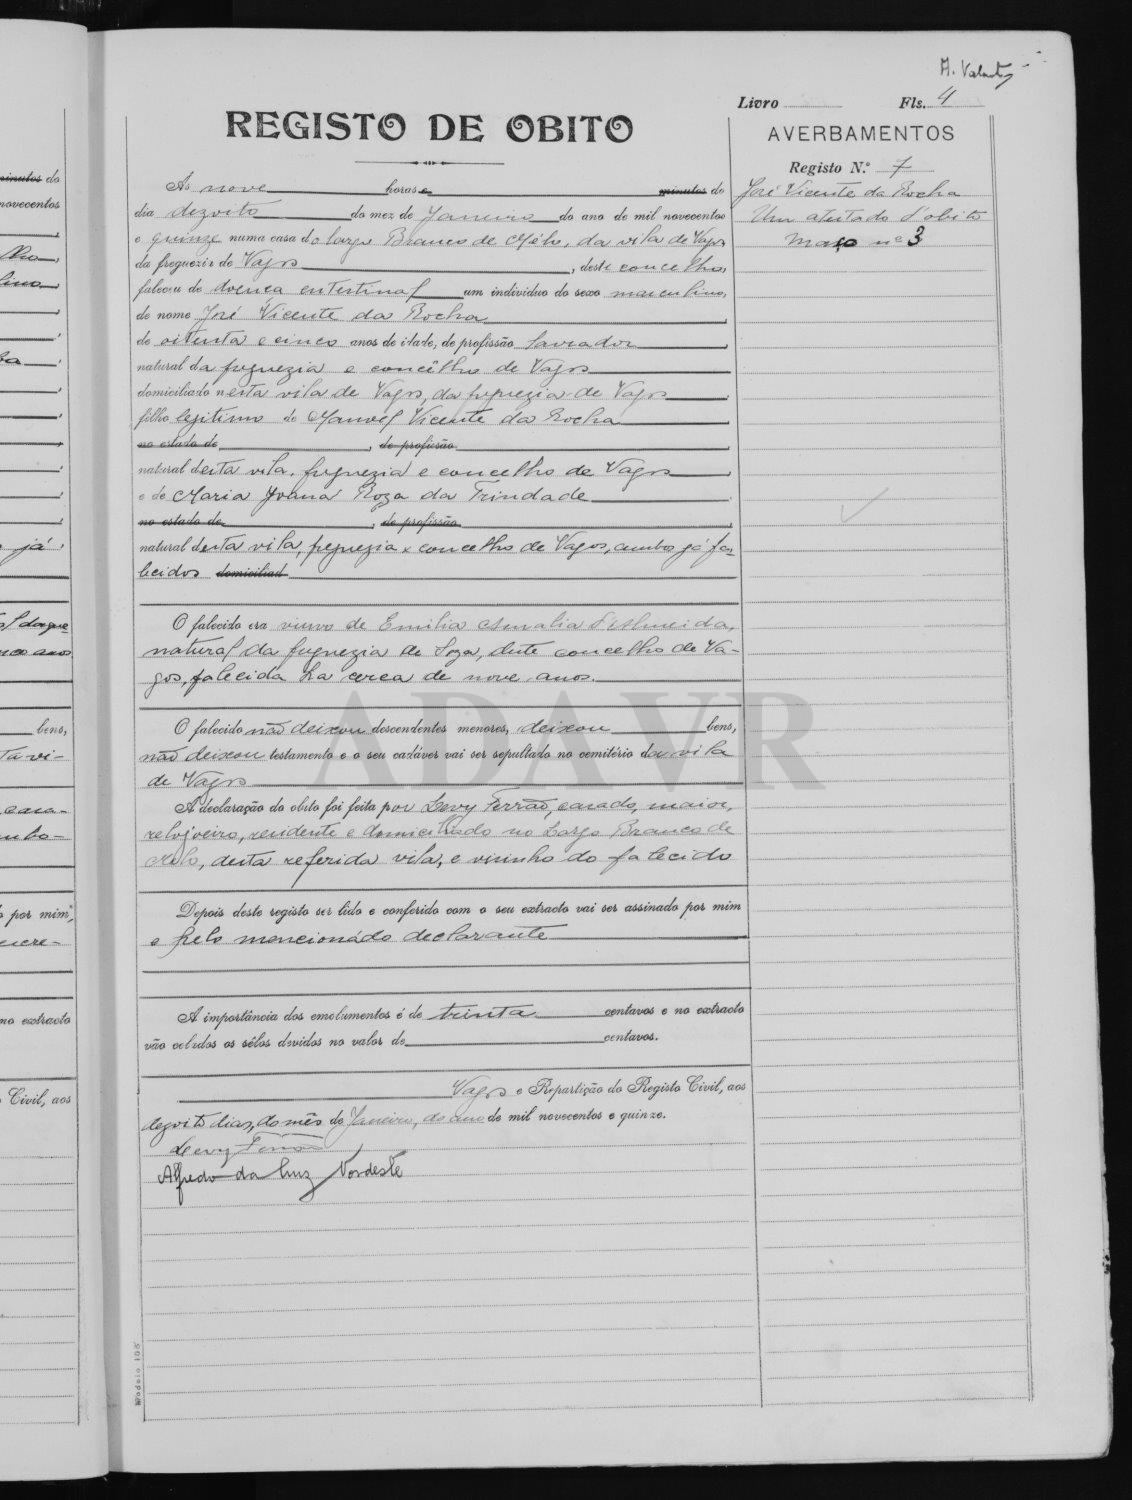 Livro Fls. 4
REGISTO DE OBITO
AVERBAMENTOS
Registo N.º 7
José Vicente da Rocha
Um atestado d'obito
Maço nº 3
Ás nove horas e minutos do
dia dezoito do mez de Janeiro do ano de mil novecentos
e quinze numa casa do largo Branco de Mélo, da vila de Vagos
da freguezia de Vagos, deste concelho,
faleceu de doença entestinal um individuo do sexo masculino,
de nome José Vicente da Rocha
de oitenta e cinco anos de idade, de profissão lavrador
natural da freguezia e concêlho de Vagos
domiciliado nesta vila de Vagos, da freguezia de Vagos
filho legitimo de Manoel Vicente da Rocha
no estado de , de profissão
natural desta vila, freguezia e concelho de Vagos
e de Maria Joana Roza da Trindade
no estado de , de profissão
natural desta vila, freguezia e concelho de Vagos, ambos já fa-
lecidos domiciliad
O falecido era viuvo de Emilia Amalia d'Almeida,
natural da freguezia de Soza, deste concelho de Va-
gos, falecida ha cerca de nove anos.
O falecido não deixou descendentes menores, deixou bens,
não deixou testamento e o seu cadáver vai ser sepultado no cemitério da vila
de Vagos
A declaração do obito foi feita por Levy Ferrão, casado, maior,
relojoeiro, residente e domiciliado no Largo Branco de
Mélo, desta referida vila, e visinho do falecido
Depois deste registo ser lido e conferido com o seu extracto vai ser assinado por mim
e pelo mencionado declarante
A importância dos emolumentos é de trinta centavos e no extracto
vão colados os sêlos devidos no valor de centavos.
Vagos e Repartição do Registo Civil, aos
dezoito dias, do mês de Janeiro, do ano de mil novecentos e quinze.
Levy Ferrão
Alfredo da Cruz Nordeste
Modelo 105
ADAVR